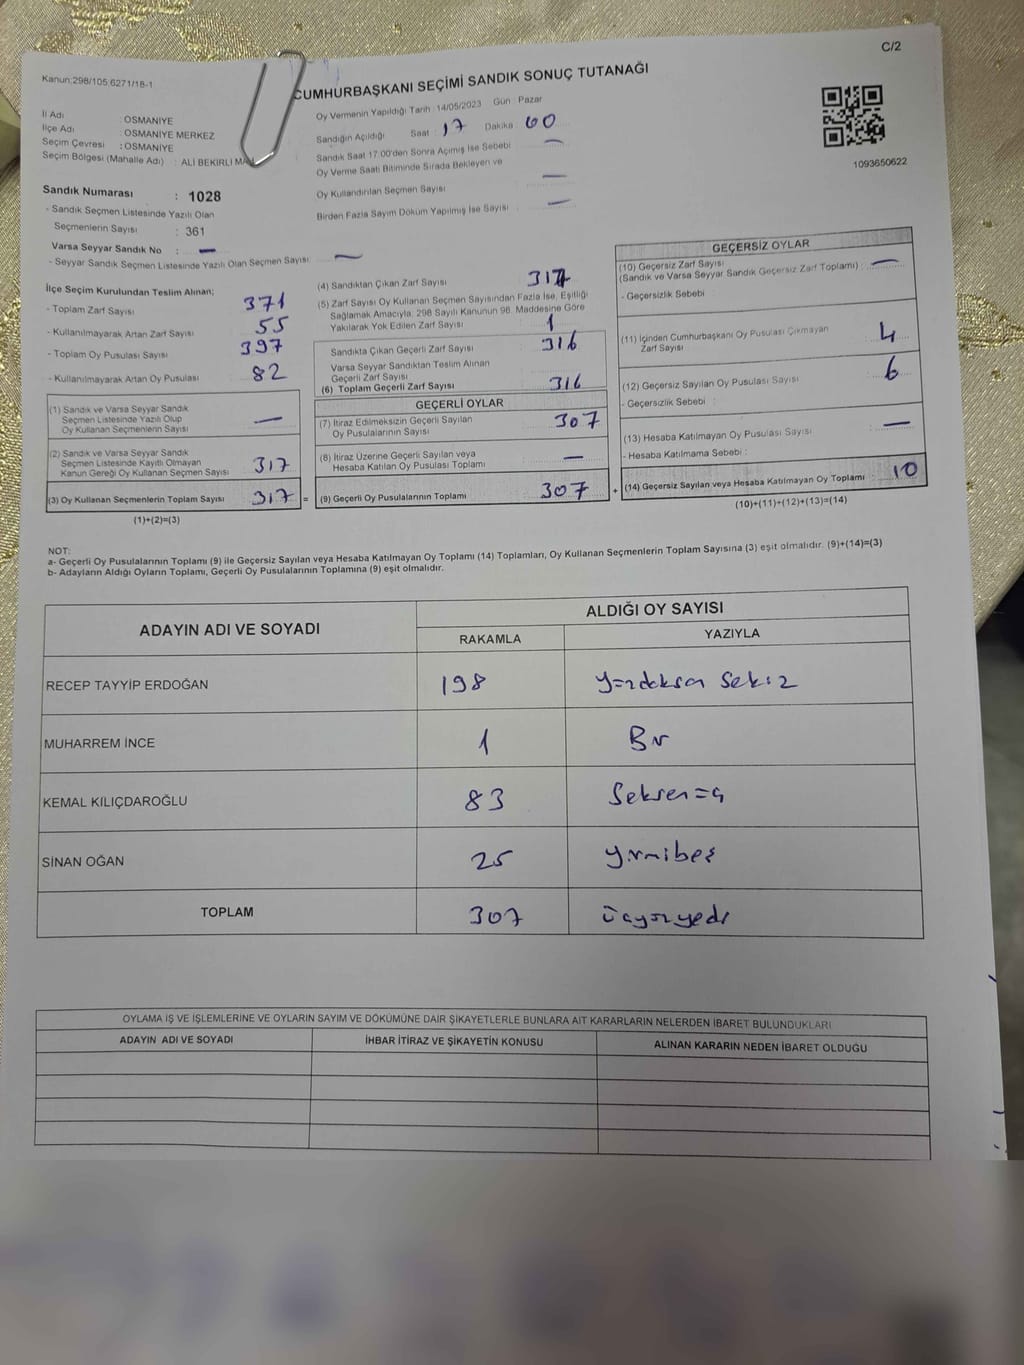 C/2
Kanun:298/105;6271/18-1
CUMHURBAŞKANI SEÇİMİ SANDIK SONUÇ TUTANAĞI
İl Adı : OSMANİYE
İlçe Adı : OSMANİYE MERKEZ
Seçim Çevresi : OSMANİYE
Seçim Bölgesi (Mahalle Adı) : ALİ BEKİRLİ
Oy Vermenin Yapıldığı Tarih : 14/05/2023 Gün : Pazar
Sandığın Açıldığı Saat : 17 Dakika 00
Sandık Saat 17.00'den Sonra Açımış İse Sebebi —
Oy Verme Saati Bitiminde Sırada Bekleyen ve
Oy Kullandırılan Seçmen Sayısı —
Birden Fazla Sayım Döküm Yapılmış İse Sayısı —
1093650622
Sandık Numarası : 1028
- Sandık Seçmen Listesinde Yazılı Olan
Seçmenlerin Sayısı : 361
Varsa Seyyar Sandık No : —
- Seyyar Sandık Seçmen Listesinde Yazılı Olan Seçmen Sayısı —
İlçe Seçim Kurulundan Teslim Alınan;
- Toplam Zarf Sayısı 371
- Kullanılmayarak Artan Zarf Sayısı 55
- Toplam Oy Pusulası Sayısı 397
- Kullanılmayarak Artan Oy Pusulası 82
(1) Sandık ve Varsa Seyyar Sandık
Seçmen Listesinde Yazılı Olup
Oy Kullanan Seçmenlerin Sayısı —
(2) Sandık ve Varsa Seyyar Sandık
Seçmen Listesinde Kayıtlı Olmayan
Kanun Gereği Oy Kullanan Seçmen Sayısı 317
(3) Oy Kullanan Seçmenlerin Toplam Sayısı 317 =
(1)+(2)=(3)
(4) Sandıktan Çıkan Zarf Sayısı 317
(5) Zarf Sayısı Oy Kullanan Seçmen Sayısından Fazla İse, Eşitliği
Sağlamak Amacıyla, 298 Sayılı Kanunun 98. Maddesine Göre
Yakılarak Yok Edilen Zarf Sayısı 1
Sandıkta Çıkan Geçerli Zarf Sayısı 316
Varsa Seyyar Sandıktan Teslim Alınan
Geçerli Zarf Sayısı
(6) Toplam Geçerli Zarf Sayısı 316
GEÇERLİ OYLAR
(7) İtiraz Edilmeksizin Geçerli Sayılan
Oy Pusulalarının Sayısı 307
(8) İtiraz Üzerine Geçerli Sayılan veya
Hesaba Katılan Oy Pusulası Toplamı —
(9) Geçerli Oy Pusulalarının Toplamı 307 +
GEÇERSİZ OYLAR
(10) Geçersiz Zarf Sayısı
(Sandık ve Varsa Seyyar Sandık Geçersiz Zarf Toplamı) : —
- Geçersizlik Sebebi
(11) İçinden Cumhurbaşkanı Oy Pusulası Çıkmayan
Zarf Sayısı 4
(12) Geçersiz Sayılan Oy Pusulası Sayısı 6
- Geçersizlik Sebebi :
(13) Hesaba Katılmayan Oy Pusulası Sayısı : —
- Hesaba Katılmama Sebebi :
(14) Geçersiz Sayılan veya Hesaba Katılmayan Oy Toplamı : 10
(10)+(11)+(12)+(13)=(14)
NOT:
a- Geçerli Oy Pusulalarının Toplamı (9) ile Geçersiz Sayılan veya Hesaba Katılmayan Oy Toplamı (14) Toplamları, Oy Kullanan Seçmenlerin Toplam Sayısına (3) eşit olmalıdır. (9)+(14)=(3)
b- Adayların Aldığı Oyların Toplamı, Geçerli Oy Pusulalarının Toplamına (9) eşit olmalıdır.
ADAYIN ADI VE SOYADI ALDIĞI OY SAYISI
RAKAMLA YAZIYLA
RECEP TAYYİP ERDOĞAN 198 yüzdoksan sekiz
MUHARREM İNCE 1 Bir
KEMAL KILIÇDAROĞLU 83 Seksenüç
SİNAN OĞAN 25 yirmibeş
TOPLAM 307 üçyüzyedi
OYLAMA İŞ VE İŞLEMLERİNE VE OYLARIN SAYIM VE DÖKÜMÜNE DAİR ŞİKAYETLERLE BUNLARA AİT KARARLARIN NELERDEN İBARET BULUNDUKLARI
ADAYIN ADI VE SOYADI İHBAR İTİRAZ VE ŞİKAYETİN KONUSU ALINAN KARARIN NEDEN İBARET OLDUĞU